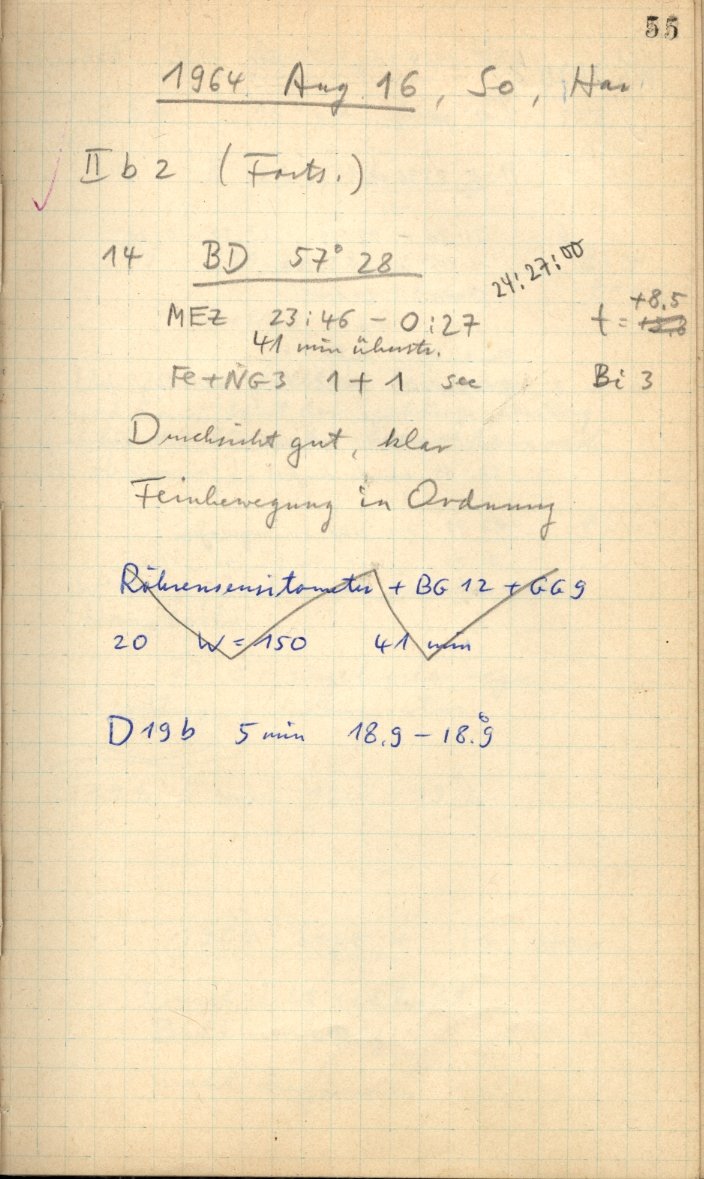 55
1964 Aug 16, So, Hau
II b 2 (Forts.)
14 BD 57° 28
24:27:00
MEZ 23:46 – 0:27 t = +8,5
41 min
Fe + NG3 1 + 1 sec Bi 3
Durchsicht gut, klar
Feinbewegung in Ordnung
Röhrensensitometer + BG 12 + GG 9
20 W = 150 41 min
D19b 5 min 18.9 – 18.°9